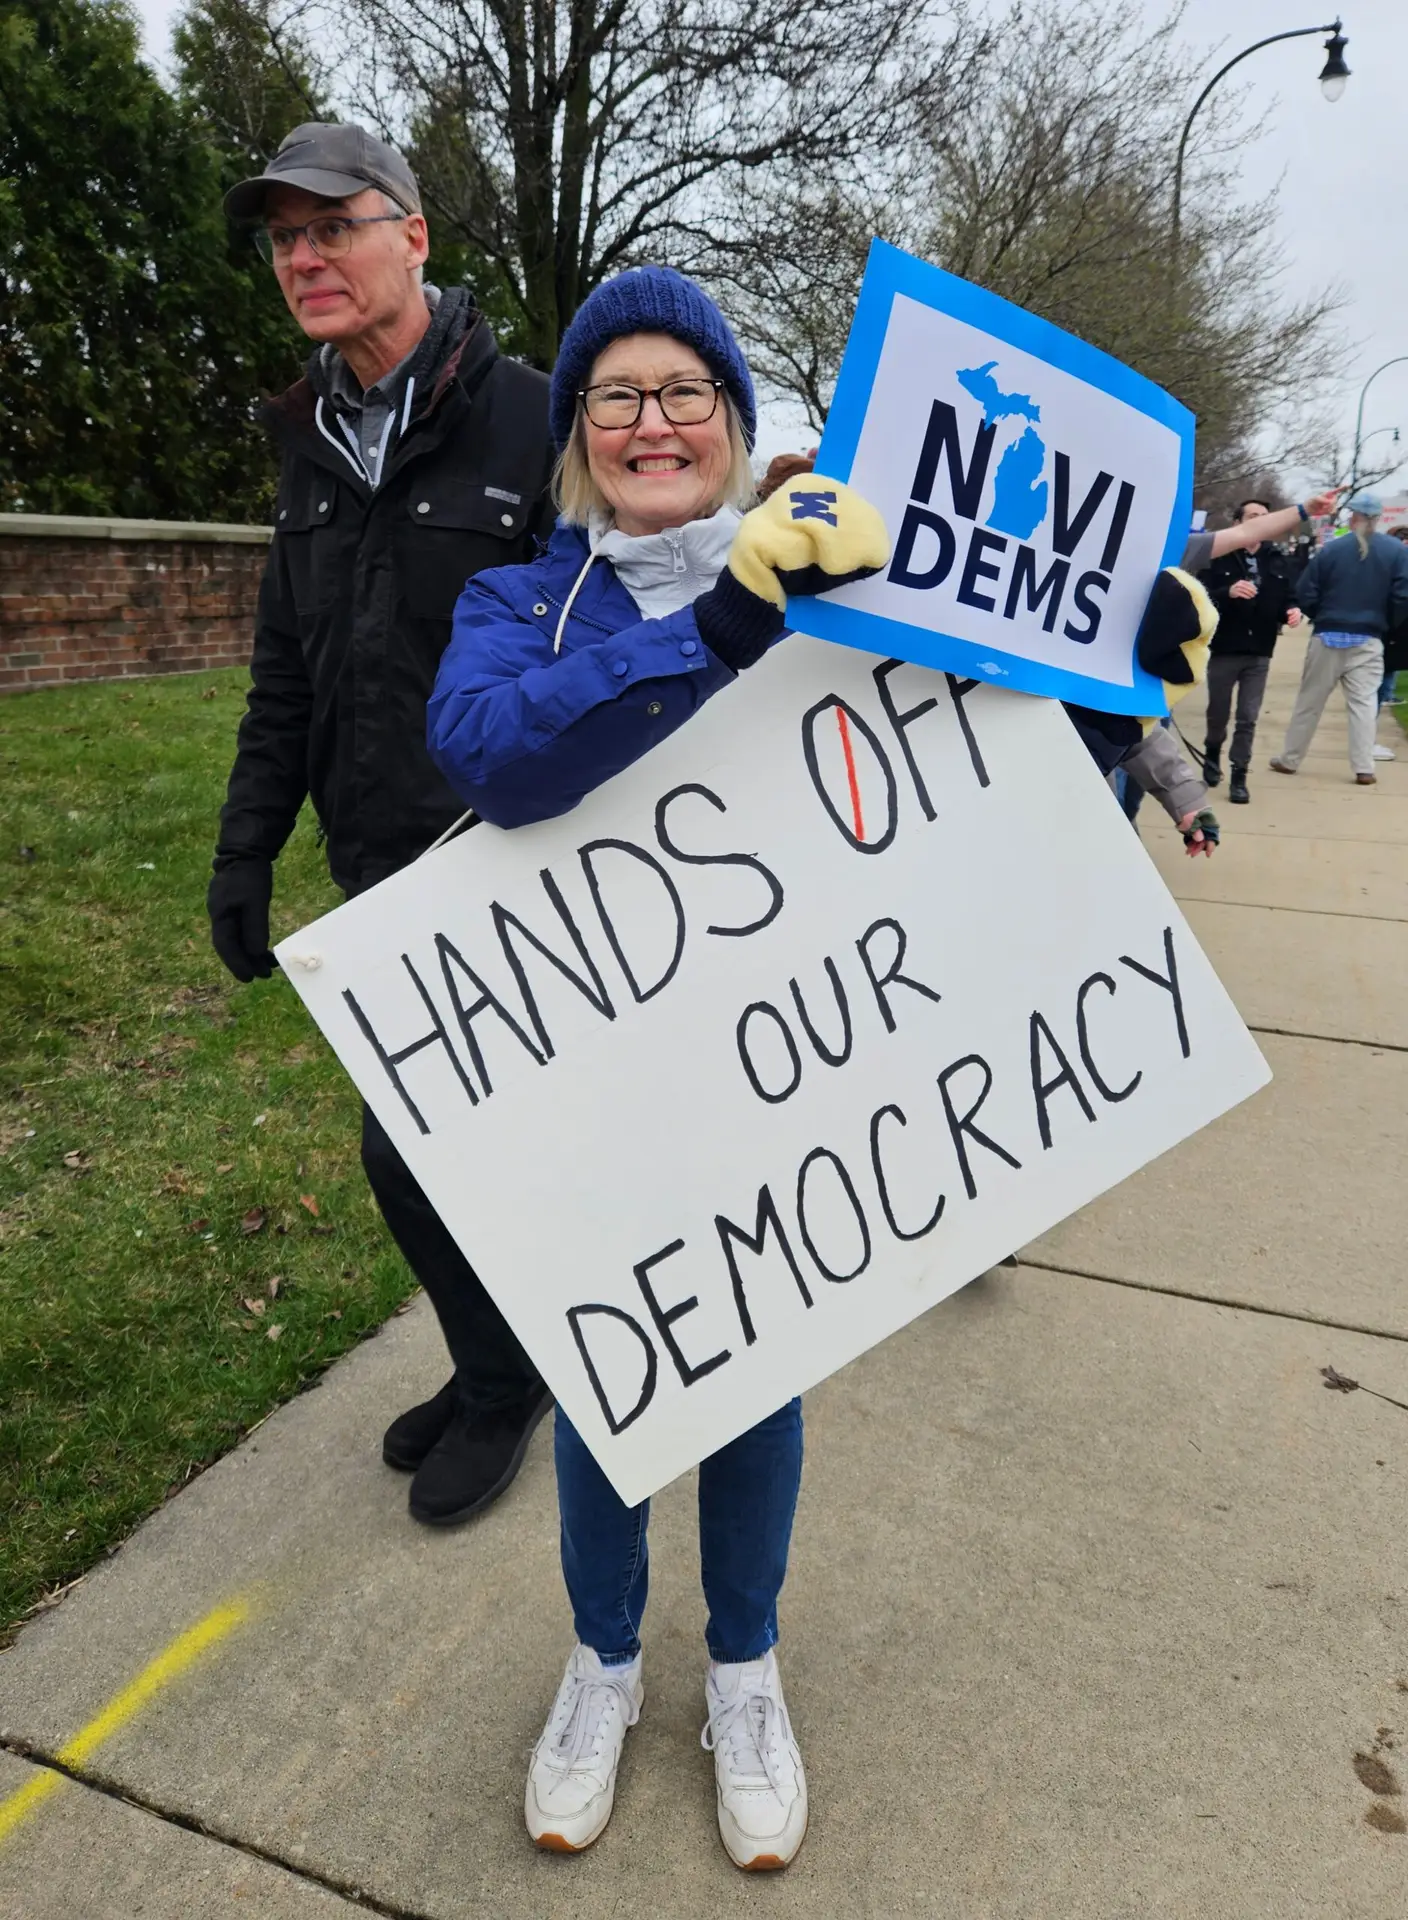 M
NOVI
DEMS
HANDS OFF
OUR
DEMOCRACY